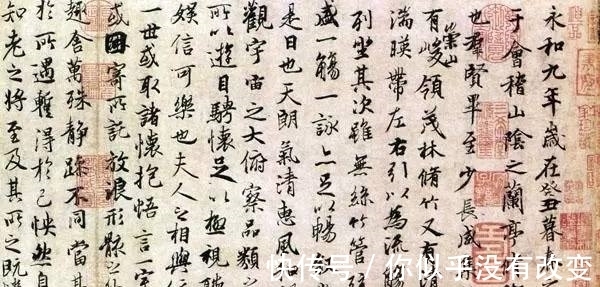 永和九年歲在癸丑暮
于會稽山陰之蘭亭
也羣賢畢至少長咸
有崇山峻領茂林脩竹又有
湍暎帶左右引以為流觴
列坐其次雖無絲竹管
盛一觴一詠亦足以暢
是日也天朗氣清惠風
觀宇宙之大俯察品類之
所以遊目騁懷足以極視聽
娛信可樂也夫人之相與
一世或取諸懷抱悟言一室
或因寄所託放浪形骸之
趣舍萬殊靜躁不同當其
於所遇蹔得於己怏然自
知老之將至及其所之既
快传号 / 你似乎没有改变